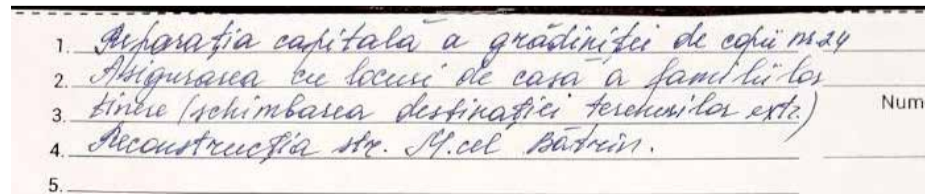 1. Reparația capitală a grădiniței de copii nr. 24
2. Asigurarea cu locuri de casă a familiilor
3. tinere (schimbarea destinației terenurilor extr.)
Num
4. Reconstrucția str. M.cel Bătrîn.
5.